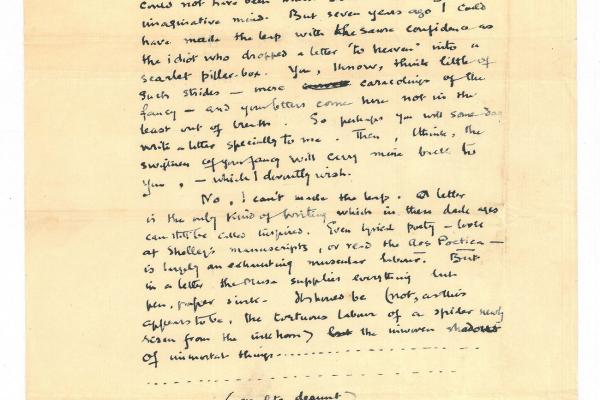 could not have been
imaginative mind. But seven years ago I could
have made the leap with the same confidence as
the idiot who dropped a letter 'to heaven' into a
scarlet pillar-box. You, I know, think little of
such strides — mere caracolings of the
fancy — and your letters come here not in the
least out of breath. So perhaps you will some day
write a letter specially to me. Then, I think, the
swiftness of your fancy will carry mine back to
you, — which I devoutly wish.
No, I can't made the leap. A letter
is the only kind of writing which in these dark ages
can still be called inspired. Even lyrical poetry — look
at Shelley's manuscripts, or read the Ars Poetica —
is largely an exhausting muscular labour. But
in a letter the Muse supplies everything but
pen, paper & ink. It should be (not, as this
appears to be, the tortuous labour of a spider newly
risen from the inkhorn) but the inwoven shadows
of immortal things..............